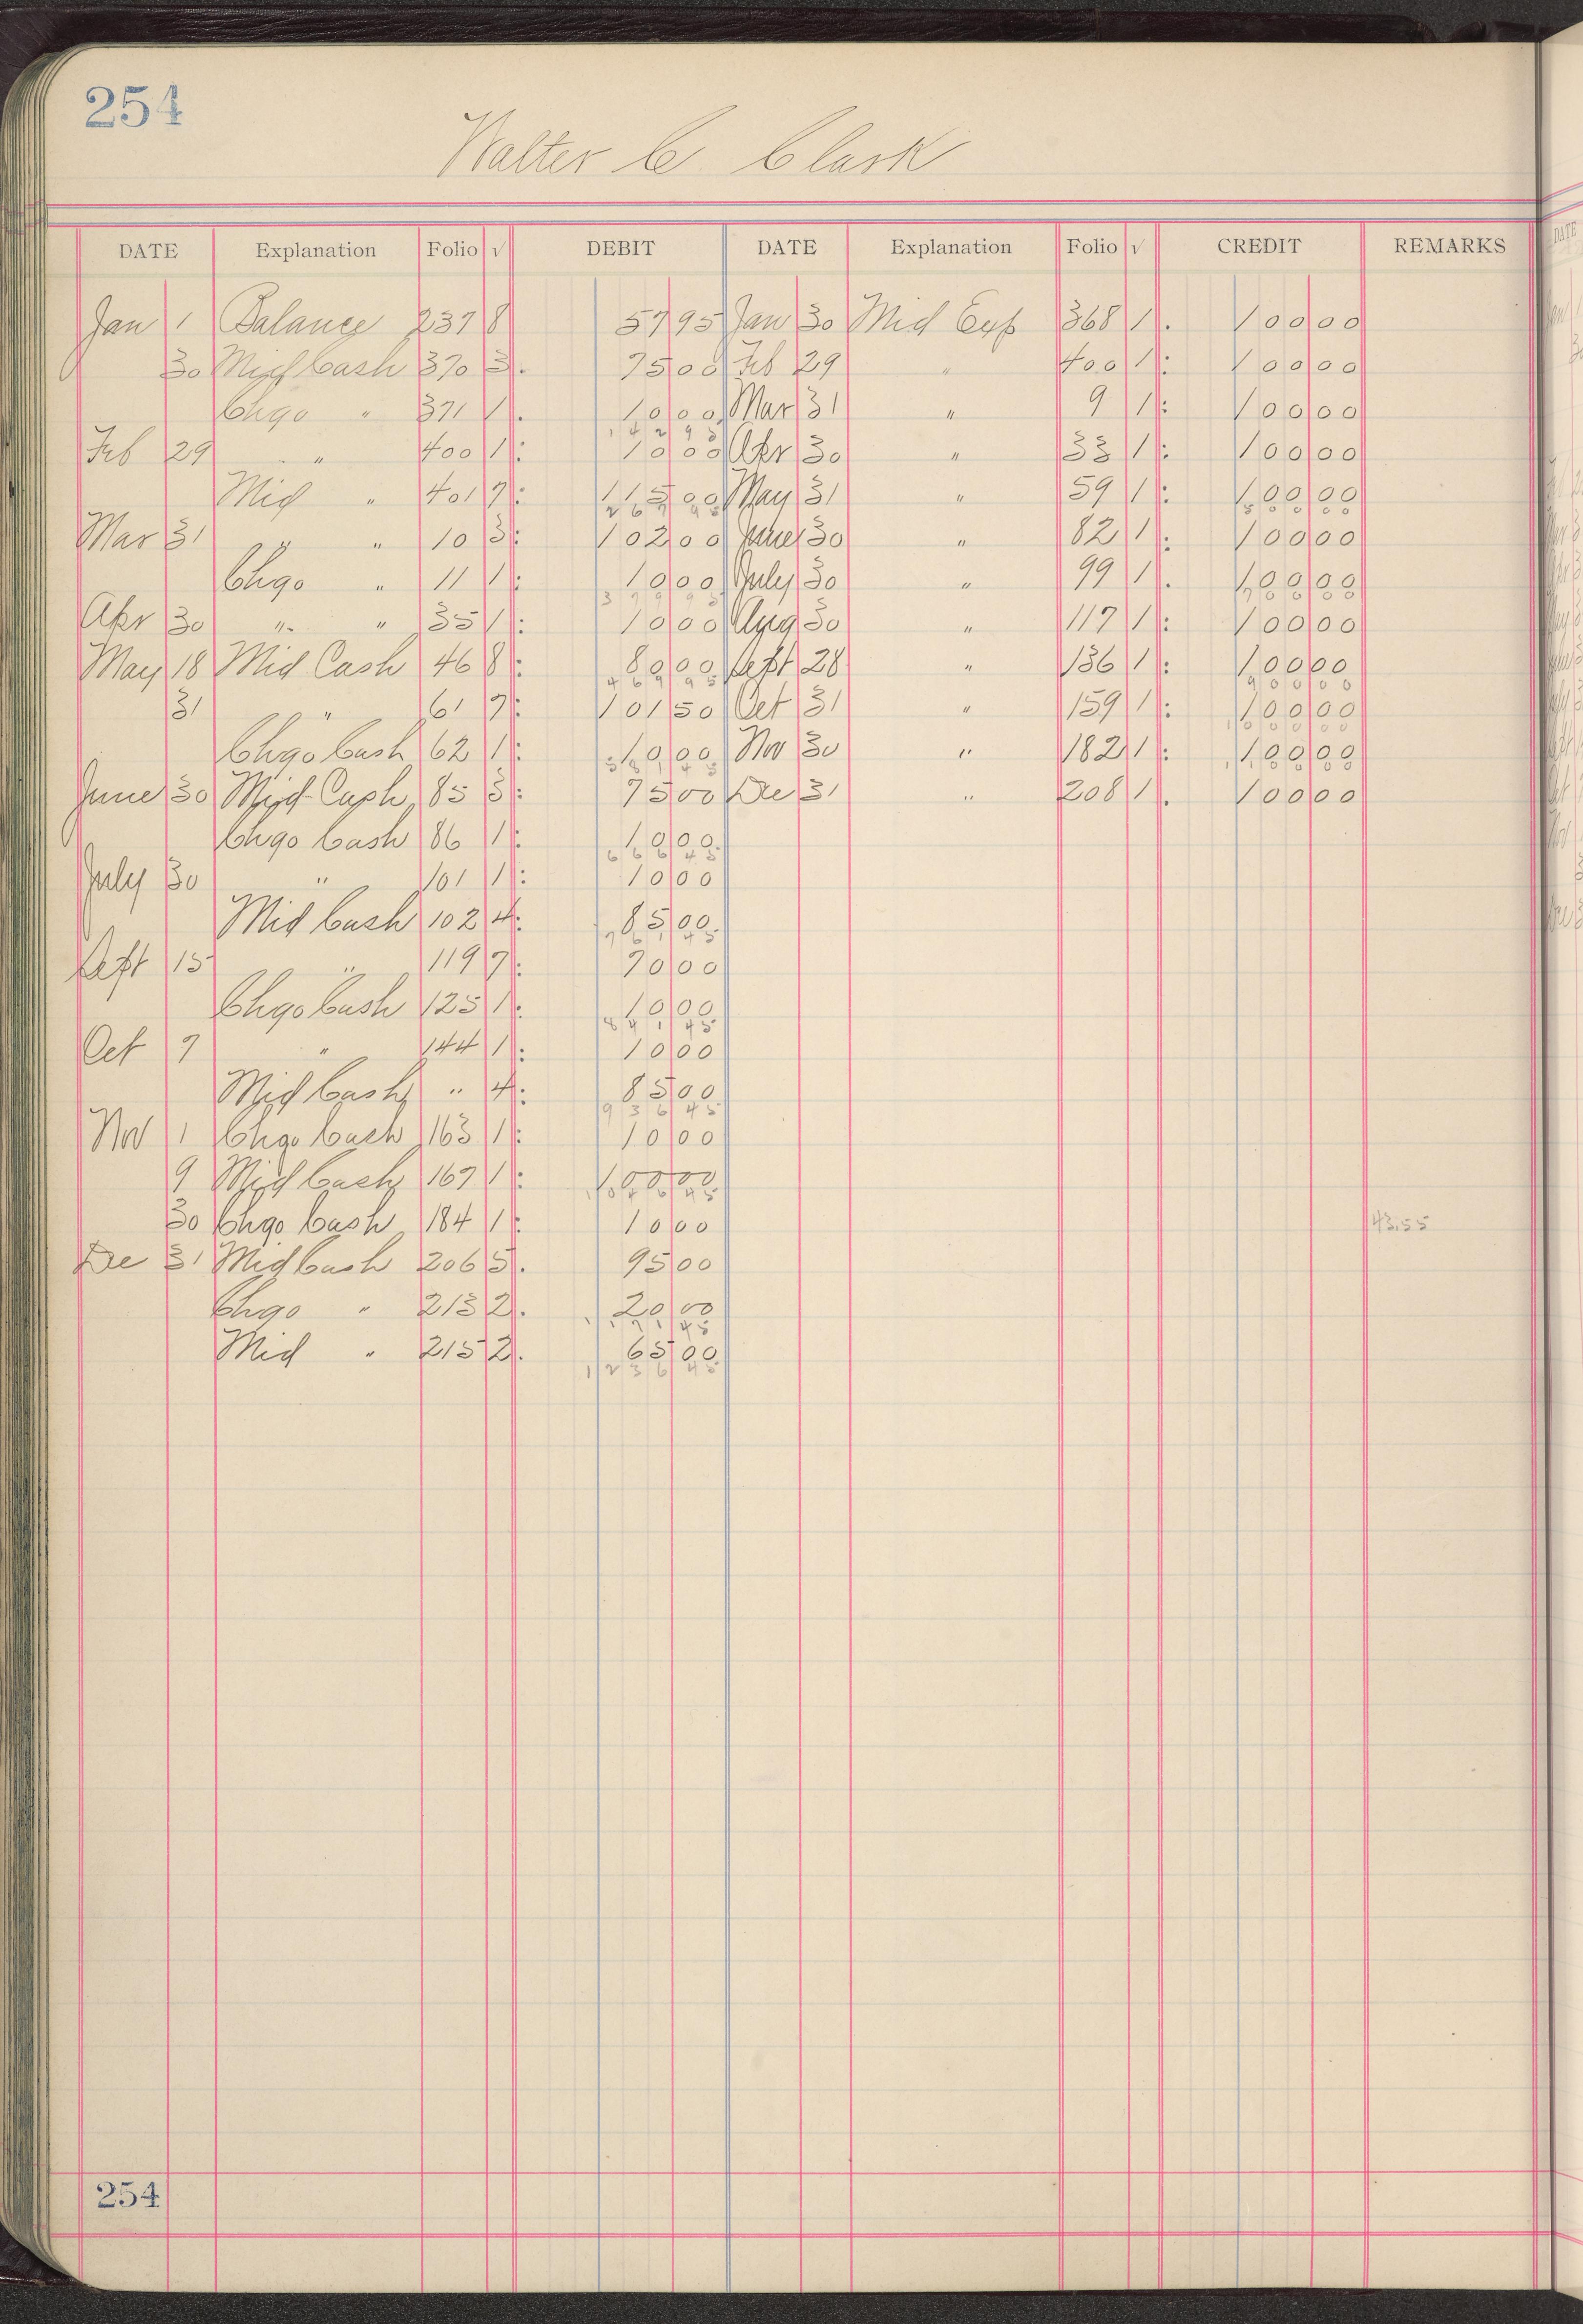 254
Walter C. Clark
DATE Explanation Folio √ DEBIT DATE Explanation Folio √ CREDIT REMARKS
Jan 1 Balance 237 8 57 95 Jan 30 Mid Exp 368 1 100 00
30 Mid Cash 370 3 75 00 Feb 29 " 400 1 100 00
Chgo " 371 1 10 00 Mar 31 " 9 1 100 00
142 95
Feb 29 " 400 1 10 00 Apr 30 " 33 1 100 00
Mid " 401 7 115 00 May 31 " 59 1 100 00
267 95 500 00
Mar 31 " " 10 3 102 00 June 30 " 82 1 100 00
Chgo " 11 1 10 00 July 30 " 99 1 100 00
379 95 700 00
Apr 30 " " 35 1 10 00 Aug 30 " 117 1 100 00
May 18 Mid Cash 46 8 80 00 Sept 28 " 136 1 100 00
469 95 900 00
31 " 61 7 101 50 Oct 31 " 159 1 100 00
Chgo Cash 62 1 10 00 Nov 30 " 182 1 100 00
581 45
June 30 Mid Cash 85 3 75 00 De 31 " 208 1 100 00
Chgo Cash 86 1 10 00
666 45
July 30 " 101 1 10 00
Mid Cash 102 4 85 00
761 45
Sept 15 " 119 7 70 00
Chgo Cash 125 1 10 00
841 45
Oct 7 " 144 1 10 00
Mid Cash " 4 85 00
936 45
Nov 1 Chgo Cash 163 1 10 00
9 Mid Cash 167 1 100 00
1046 45
30 Chgo Cash 184 1 10 00 43.55
De 31 Mid Cash 206 5 95 00
Chgo " 213 2 20 00
1171 45
Mid " 215 2 65 00
1236 45
254